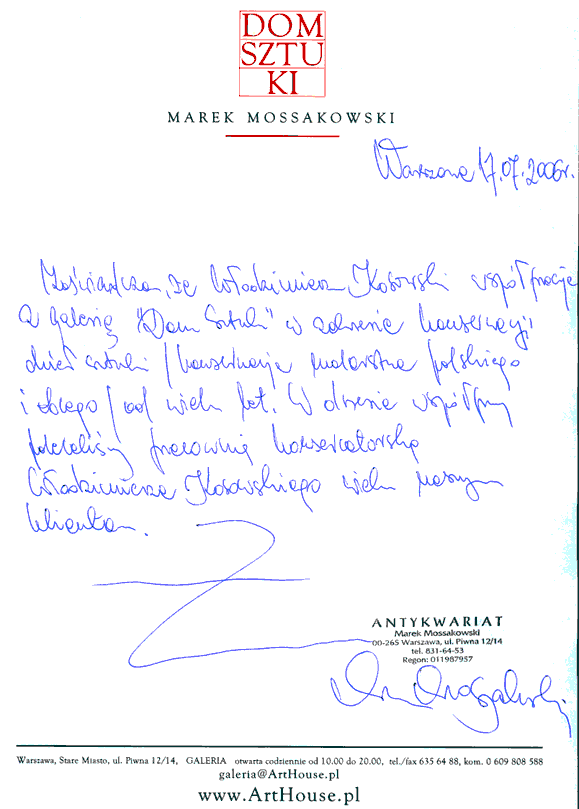 DOM
SZTU
KI
MAREK MOSSAKOWSKI
Warszawa 17.07.2006r.
Zaświadczam, że Włodzimierz Kosowski współpracuje
z galerią "Dom Sztuki" w zakresie konserwacji
dzieł sztuki /konserwacja malarstwa polskiego
i obcego/ od wielu lat. W okresie współpracy
poleciliśmy pracownię konserwatorską
Włodzimierza Kosowskiego wielu naszym
klientom.
ANTYKWARIAT
Marek Mossakowski
00-265 Warszawa, ul. Piwna 12/14
tel. 831-64-53
Regon: 011987957
Warszawa, Stare Miasto, ul. Piwna 12/14, GALERIA otwarta codziennie od 10.00 do 20.00, tel./fax 635 64 88, kom. 0 609 808 588
galeria@ArtHouse.pl
www.ArtHouse.pl